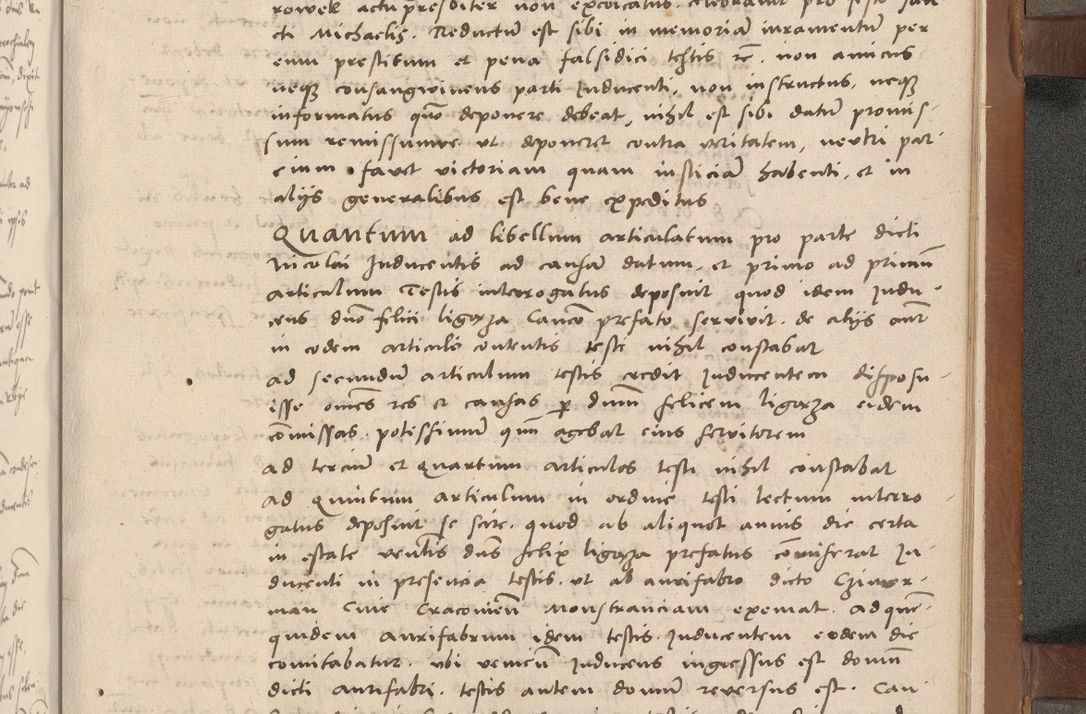 rowek actu presbiter non excoicatus celebravit pro festo san
cti Michaelis. Reductũ est sibi in memoriã iuramentũ per
eum prestitum et pena falsidici testis rc̃. non amicus
neqȝ consangwineus parti Inducenti, non instructus, neqȝ
informatus quõ deponere debeat, nihil est sibi datũ promis-
sum remissumve ut deponeret contra veritatem, neutri par
cium favet victoriam quam iusticiã habenti, et in
aliis generalibus est bene expeditus
Quantum ad libellum articulatum pro parte dicti
Nicolai Inducentis ad causã datum, et primo ad primũ
articulum Testis interrogatus deposuit quod idem Indu-
cens dño felici ligęza Canco prefato servivit. de aliis aũt
in eodem articulo contentis testi nihil constabat
ad secundũ articulum testis credit Inducentem disposu-
isse om̃es res et causas ꝑ dnũm felicem ligęza eidem
cõmissas. potissimũ qũm agebat eius servitorem
ad terciũ et quartum articulos testi nihil constabat
ad quintum articulum in ordine testi lectum interro-
gatus deposuit se scire. quod ab aliquot annis die certa
in estate venĩens dñs felix ligęza prefatus cõmiserat In-
ducenti in presencia testis. ut ab aurifabro dicto Czimer-
man Cive Cracovieñ Monstranciam eximat. ad quẽ-
quidem aurifabrum idem testis. Inducentem eodem die
comitabatur. ubi venieñ Inducens ingressus est domũ
dicti aurifabri. testis autem domũ reversus est. Cau